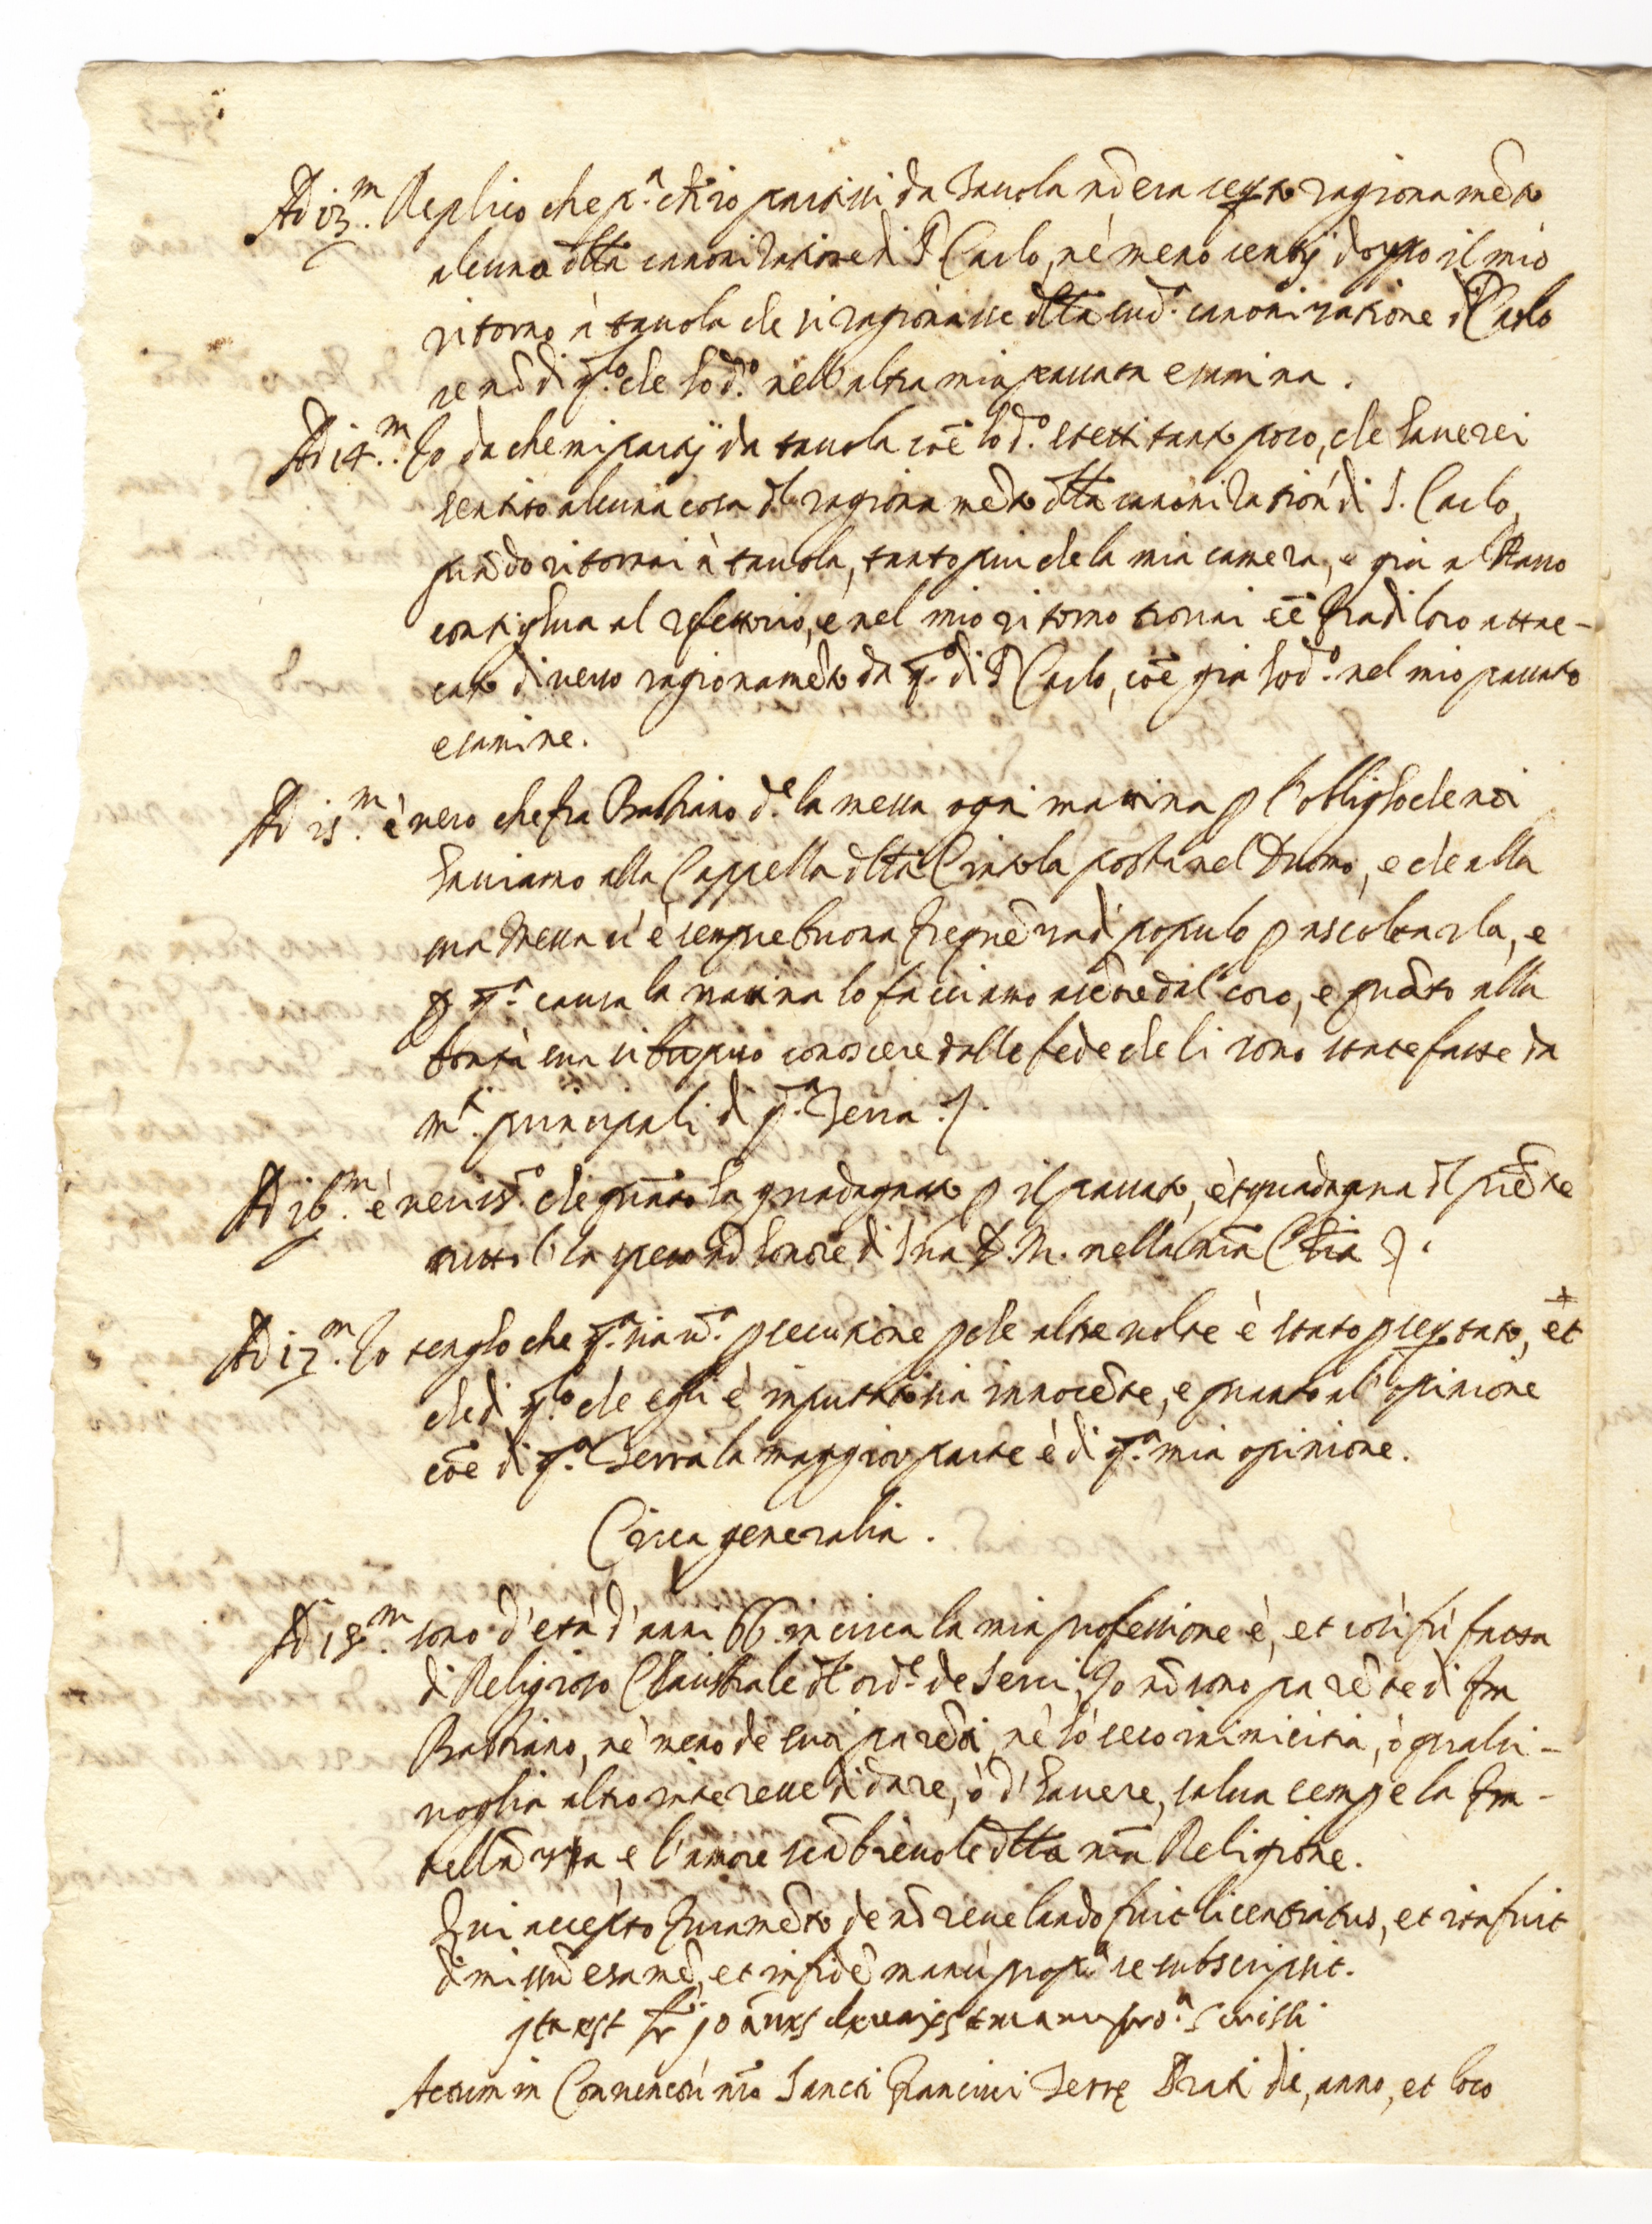 Ad 13.m Replico che p.a ch'io partissi da Tauola nō era seg.to ragionamēto
alcuno dlla canonizatione di S. Carlo, nè meno sentij doppo il mio
ritorno à tauola che si ragionasse dlla sud.a canonizatione di S. Carlo
se nō di q.lo che hò d.o nell'altra mia passata esamina.
Ad 14.m Io da che mi partij da tauola coē hò d.o stetti tanto poco, che hauerei
sentito alcuna cosa dl ragionamēto dlla canonization' di S. Carlo,
quādo ritornai à tauola, tanto piu che la mia camera, e già a
contighua al refettorio, e nel mio ritorno trouai eē fra di loro attac-
cato diuerso ragionamēto da q.o di S. Carlo, coē già hò d.o nel mio passato
esamine.
Ad 15.m è uero che fra Bastiano d.e la messa ogni mattina p l'obligho che noi
hauiamo alla Cappella dlla Cintola posta nel Duomo, e che alla
sua Messa ui è sempre buona frequēza di populo p ascoltarla, e
p q.a causa la mattina lo facciamo asētre dal coro, e quāto alla
bontà sua si può conoscere dalle fede che li sono state fatte da
m.ti principali di q.a Terra ./.
Ad 16.m è ueriss.o che quāto ha guadagnato p il passato, e guadagna dl p̄sēte
tutto l'ha speso ad honore di Sua D. M. nella n̄ra Chia
Ad 17.m Io tengho che q.a sia u.a p̄secutione p che altre uolte è stato p̄seg.tato, et
che di q.lo che egli è imputato sia innocēte, e quanto all'opinione
coē di q.a Terra la maggior parte è di q.a mia opinione.
Circa generalia.
Ad 18.m sono d'età d'anni 66. in circa la mia professione è, et così fù fatta
di Religioso Claustrale dl ord.e de Serui, Io nō sono parēte di fra
Bastiano, nè meno de suoi parēti, nè hò seco inimicitia, ò qualsi-
uoglia altro interesse di dare, ò d'hauere, salua semp̄e la fra-
tellāza, e l'amore scābieuole dlla n̄ra Religione.
Qui accepto Iuramēto de nō reuelando fuit licentiatus, et ita fuit
dimissū esamē, et in fidē manù prop.a se subscripsit.
ita est fr. joānes manu pro.a scrissi
Actum in Conuentù n̄ro Sancti Francisci Terrę Prati die, anno, et loco